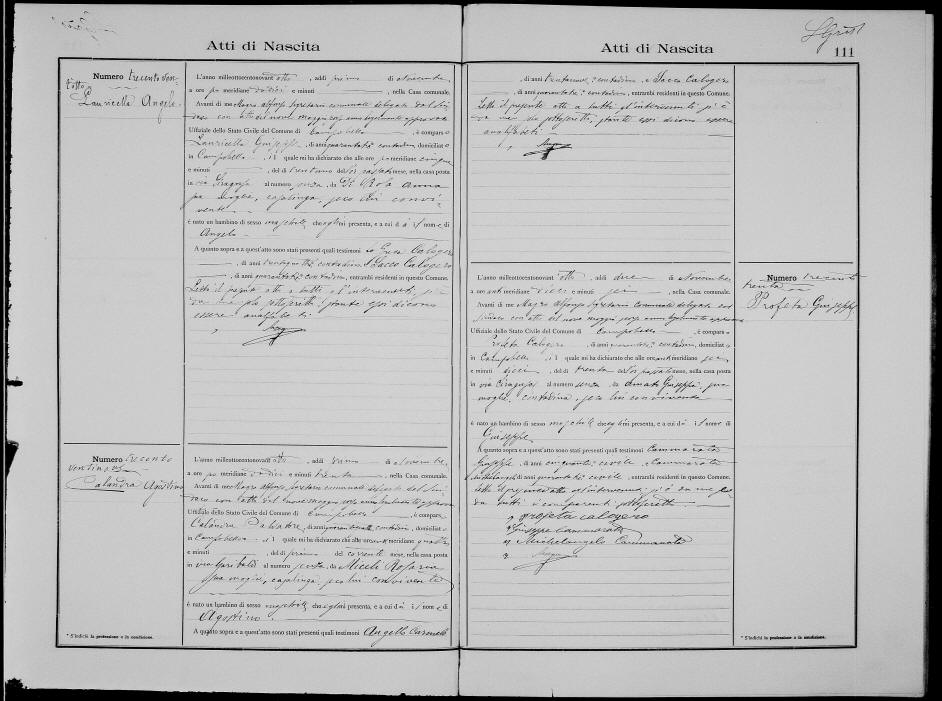 Atti di Nascita
Numero trecento ven-
totto
Lauricella Angelo
L'anno milleottocentonovant otto, addì primo di Novembre,
a ore po meridiane dodici e minuti , nella Casa comunale.
Avanti di me Magro Alfonso Segretario comunale delegato dal Sin-
daco con atto del nove maggio
Uffiziale dello Stato Civile del Comune di Campobello, è comparso
Lauricella Giuseppe, di anni quarantatre contadino domiciliato
in Campobello, il quale mi ha dichiarato che alle ore po meridiane cinque
e minuti , del dì trentuno del mese, nella casa posta
in via Siragusa al numero senza, da Di Rosa Anna
sua moglie, casalinga, seco lui convi-
vente
è nato un bambino di sesso maschile che egli mi presenta, e a cui dà il nome di
Angelo
A quanto sopra e a quest'atto sono stati presenti quali testimoni Calogero
, di anni contadino e Sacco Calogero
, di anni quarantatre contadino, entrambi residenti in questo Comune.
Letto il presente atto a tutti gl'intervenuti, si è
da me solo sottoscritto, stante essi dicono
essere analfabeti
Magro
Numero trecento
ventinove
Calandra Agostino
L'anno milleottocentonovant otto, addì primo di Novembre,
a ore po meridiane dodici e minuti trenta, nella Casa comunale.
Avanti di me Magro Alfonso Segretario comunale delegato dal Sin-
daco con atto del nove maggio
Uffiziale dello Stato Civile del Comune di Campobello, è comparso
Calandra Salvatore, di anni contadino, domiciliato
in Campobello, il quale mi ha dichiarato che alle ore meridiane quattro
e minuti , del dì primo del corrente mese, nella casa posta
in via Garibaldi al numero senza, da Miceli Rosaria
sua moglie, casalinga, seco lui convivente
è nato un bambino di sesso maschile che egli mi presenta, e a cui dà il nome di
Agostino
A quanto sopra e a quest'atto sono stati presenti quali testimoni Angello Carmelo
* S'indichi la professione o la condizione.
Atti di Nascita
111
, di anni contadino, e Sacco Calogero
, di anni quarantatre contadino, entrambi residenti in questo Comune.
Letto il presente atto a tutti gl'intervenuti si è
da me solo sottoscritto, stante essi dicono essere
analfabeti
Magro
Numero trecento
trenta
Profeta Giuseppe
L'anno milleottocentonovant otto, addì due di Novembre,
a ore anti meridiane dieci e minuti , nella Casa comunale.
Avanti di me Magro Alfonso Segretario Comunale delegato dal
Sindaco con atto del nove maggio
Uffiziale dello Stato Civile del Comune di Campobello, è comparso
Profeta Calogero, di anni quarantatre contadino, domiciliato
in Campobello, il quale mi ha dichiarato che alle ore anti meridiane sei
e minuti dieci, del dì trenta del mese, nella casa posta
in via Siragusa al numero senza, da Amato Giuseppa, sua
moglie, contadina, seco lui convivente
è nato un bambino di sesso maschile che egli mi presenta, e a cui dà il nome di
Giuseppe
A quanto sopra e a quest'atto sono stati presenti quali testimoni Cammarata
Giuseppe, di anni cinquanta civile e Cammarata
Michelangelo di anni quarantatre civile, entrambi residenti in questo Comune.
Letto il presente atto agl'intervenuti si è da me
da tutti i comparenti sottoscritto
Profeta calogero
Giuseppe Cammarata
Michelangelo Cammarata
Magro
* S'indichi la professione o la condizione.